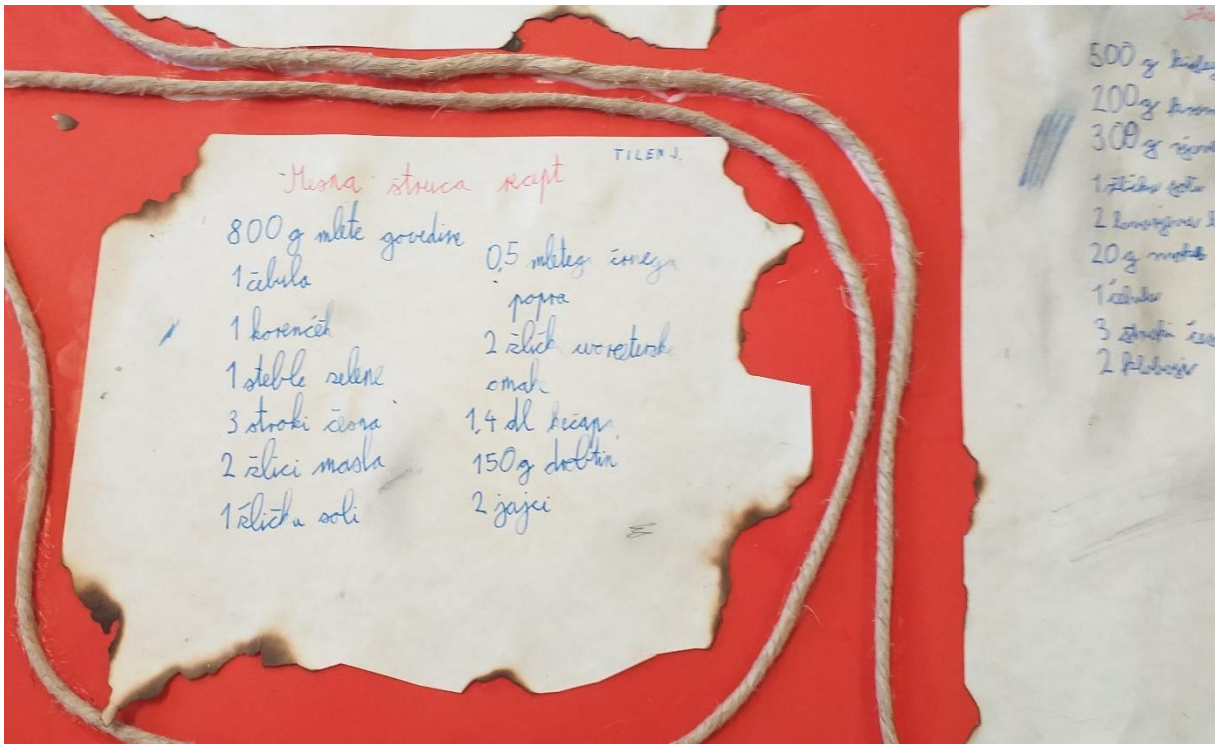 TILEN J.
Mesna struca recept
800 g mlete govedine
1 čebula
1 korenček
1 steble zelene
3 stroki česna
2 žlici masla
1 žlička soli
0,5 mletega črnega
popra
2 žlick worcetersk
omak
1,4 dl kečap
150 g drobtin
2 jajci
500 g
200 g
300 g
1 žlička soli
2
20 g
1 čebula
3 stroki
2